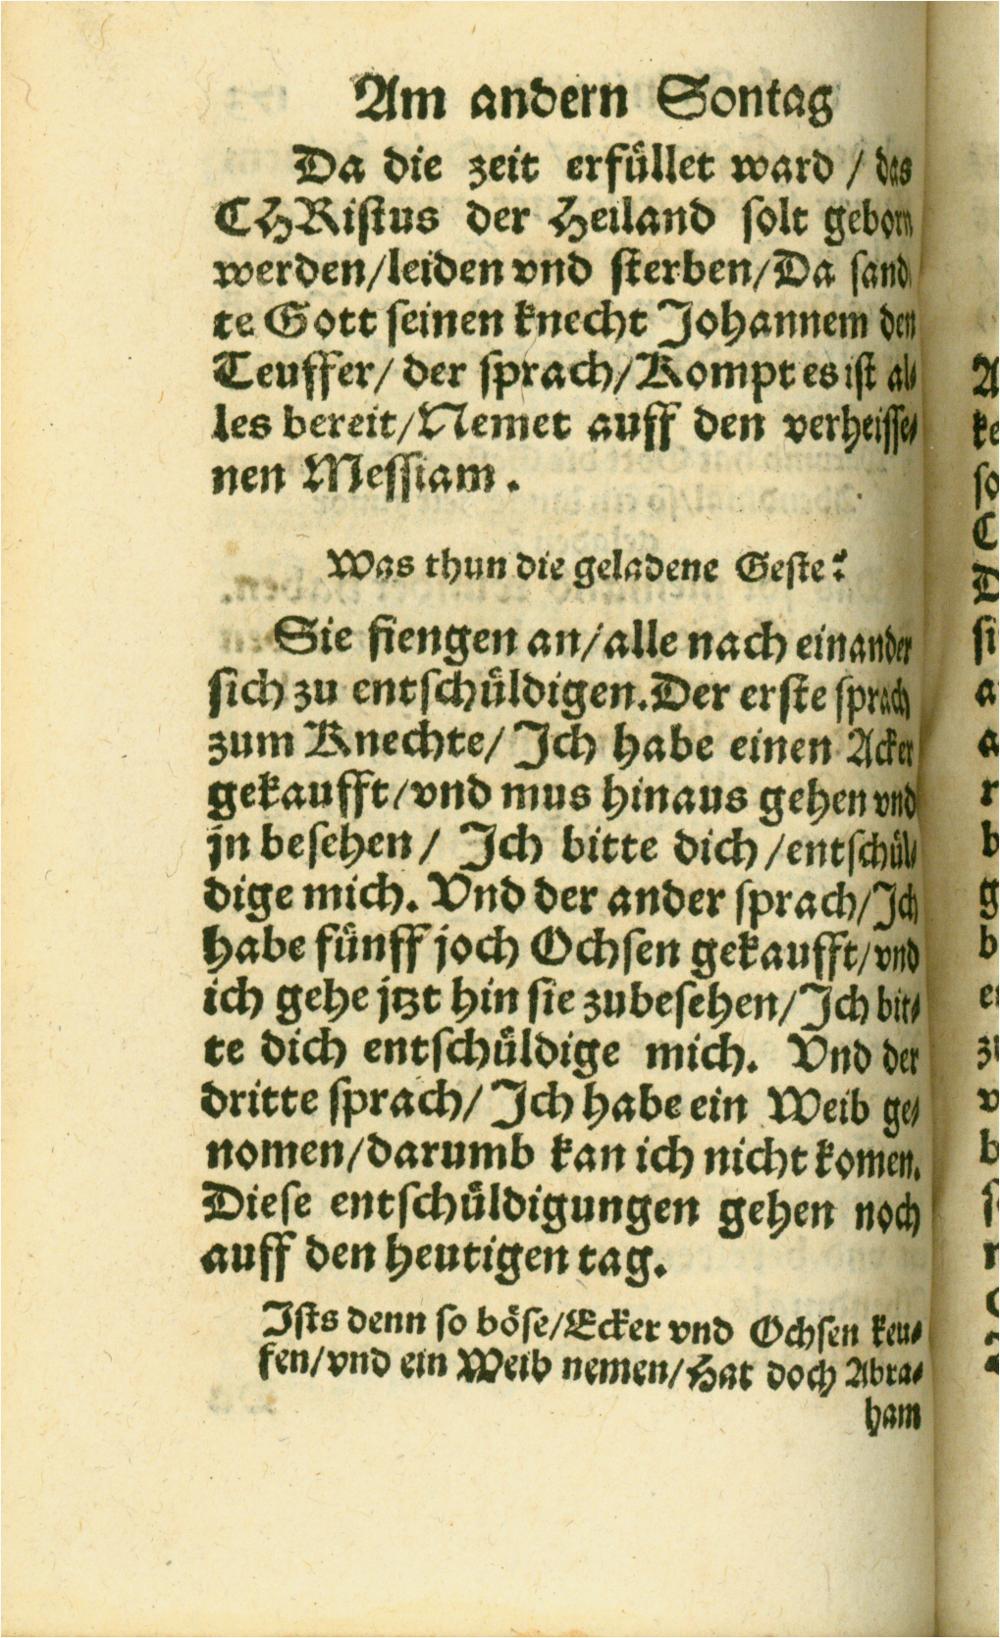 Am andern Sontag
Da die zeit erfüllet ward / das
CHRistus der Heiland solt geborn
werden/leiden vnd sterben/Da sand
te Gott seinen knecht Johannem den
Teuffer/ der sprach/Kompt es ist al⸗
les bereit/Nemet auff den verheisse⸗
nen Messiam.
Was thun die geladene Geste?
Sie fiengen an/alle nach einander
sich zu entschüldigen.Der erste sprach
zum Knechte/ Ich habe einen Acker
gekaufft/vnd mus hinaus gehen vnd
jn besehen/ Ich bitte dich /entschül⸗
dige mich. Vnd der ander sprach/Ich
habe fünff joch Ochsen gekaufft/vnd
ich gehe jtzt hin sie zubesehen/Ich bit⸗
te dich entschüldige mich. Vnd der
dritte sprach/ Ich habe ein Weib ge⸗
nomen/darumb kan ich nicht komen.
Diese entschüldigungen gehen noch
auff den heutigen tag.
Ists denn so böse/Ecker vnd Ochsen keu⸗
fen/vnd ein Weib nemen/Hat doch Abra⸗
ham